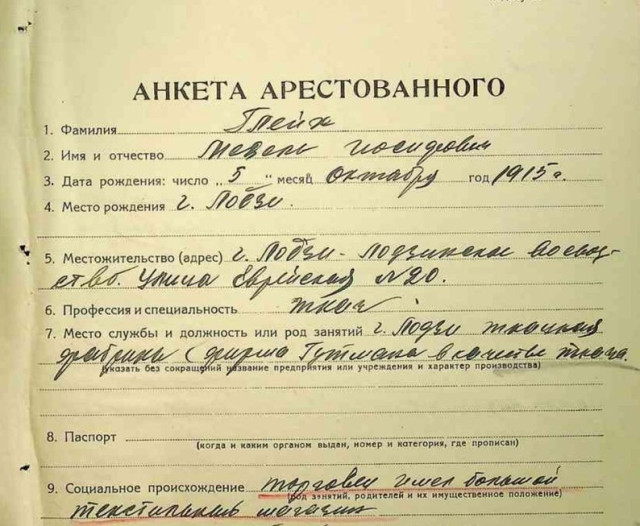 АНКЕТА АРЕСТОВАННОГО
1. Фамилия Глейх
2. Имя и отчество Иосифович
3. Дата рождения: число „5" месяц октября год 1915 г.
4. Место рождения г. Лодзи.
5. Местожительство (адрес) г. Лодзи - Лодзинское воевод-
ство. Улица Еврейская №20.
6. Профессия и специальность ткач
7. Место службы и должность или род занятий г. Лодзи ткацкая
фабрика (фирма Гутмана в качестве ткача.
(указать без сокращений название предприятия или учреждения и характер производства)
8. Паспорт
(когда и каким органом выдан, номер и категория, где прописан)
9. Социальное происхождение торговец имел большой
(род занятий, родителей и их имущественное положение)
текстильный магазин